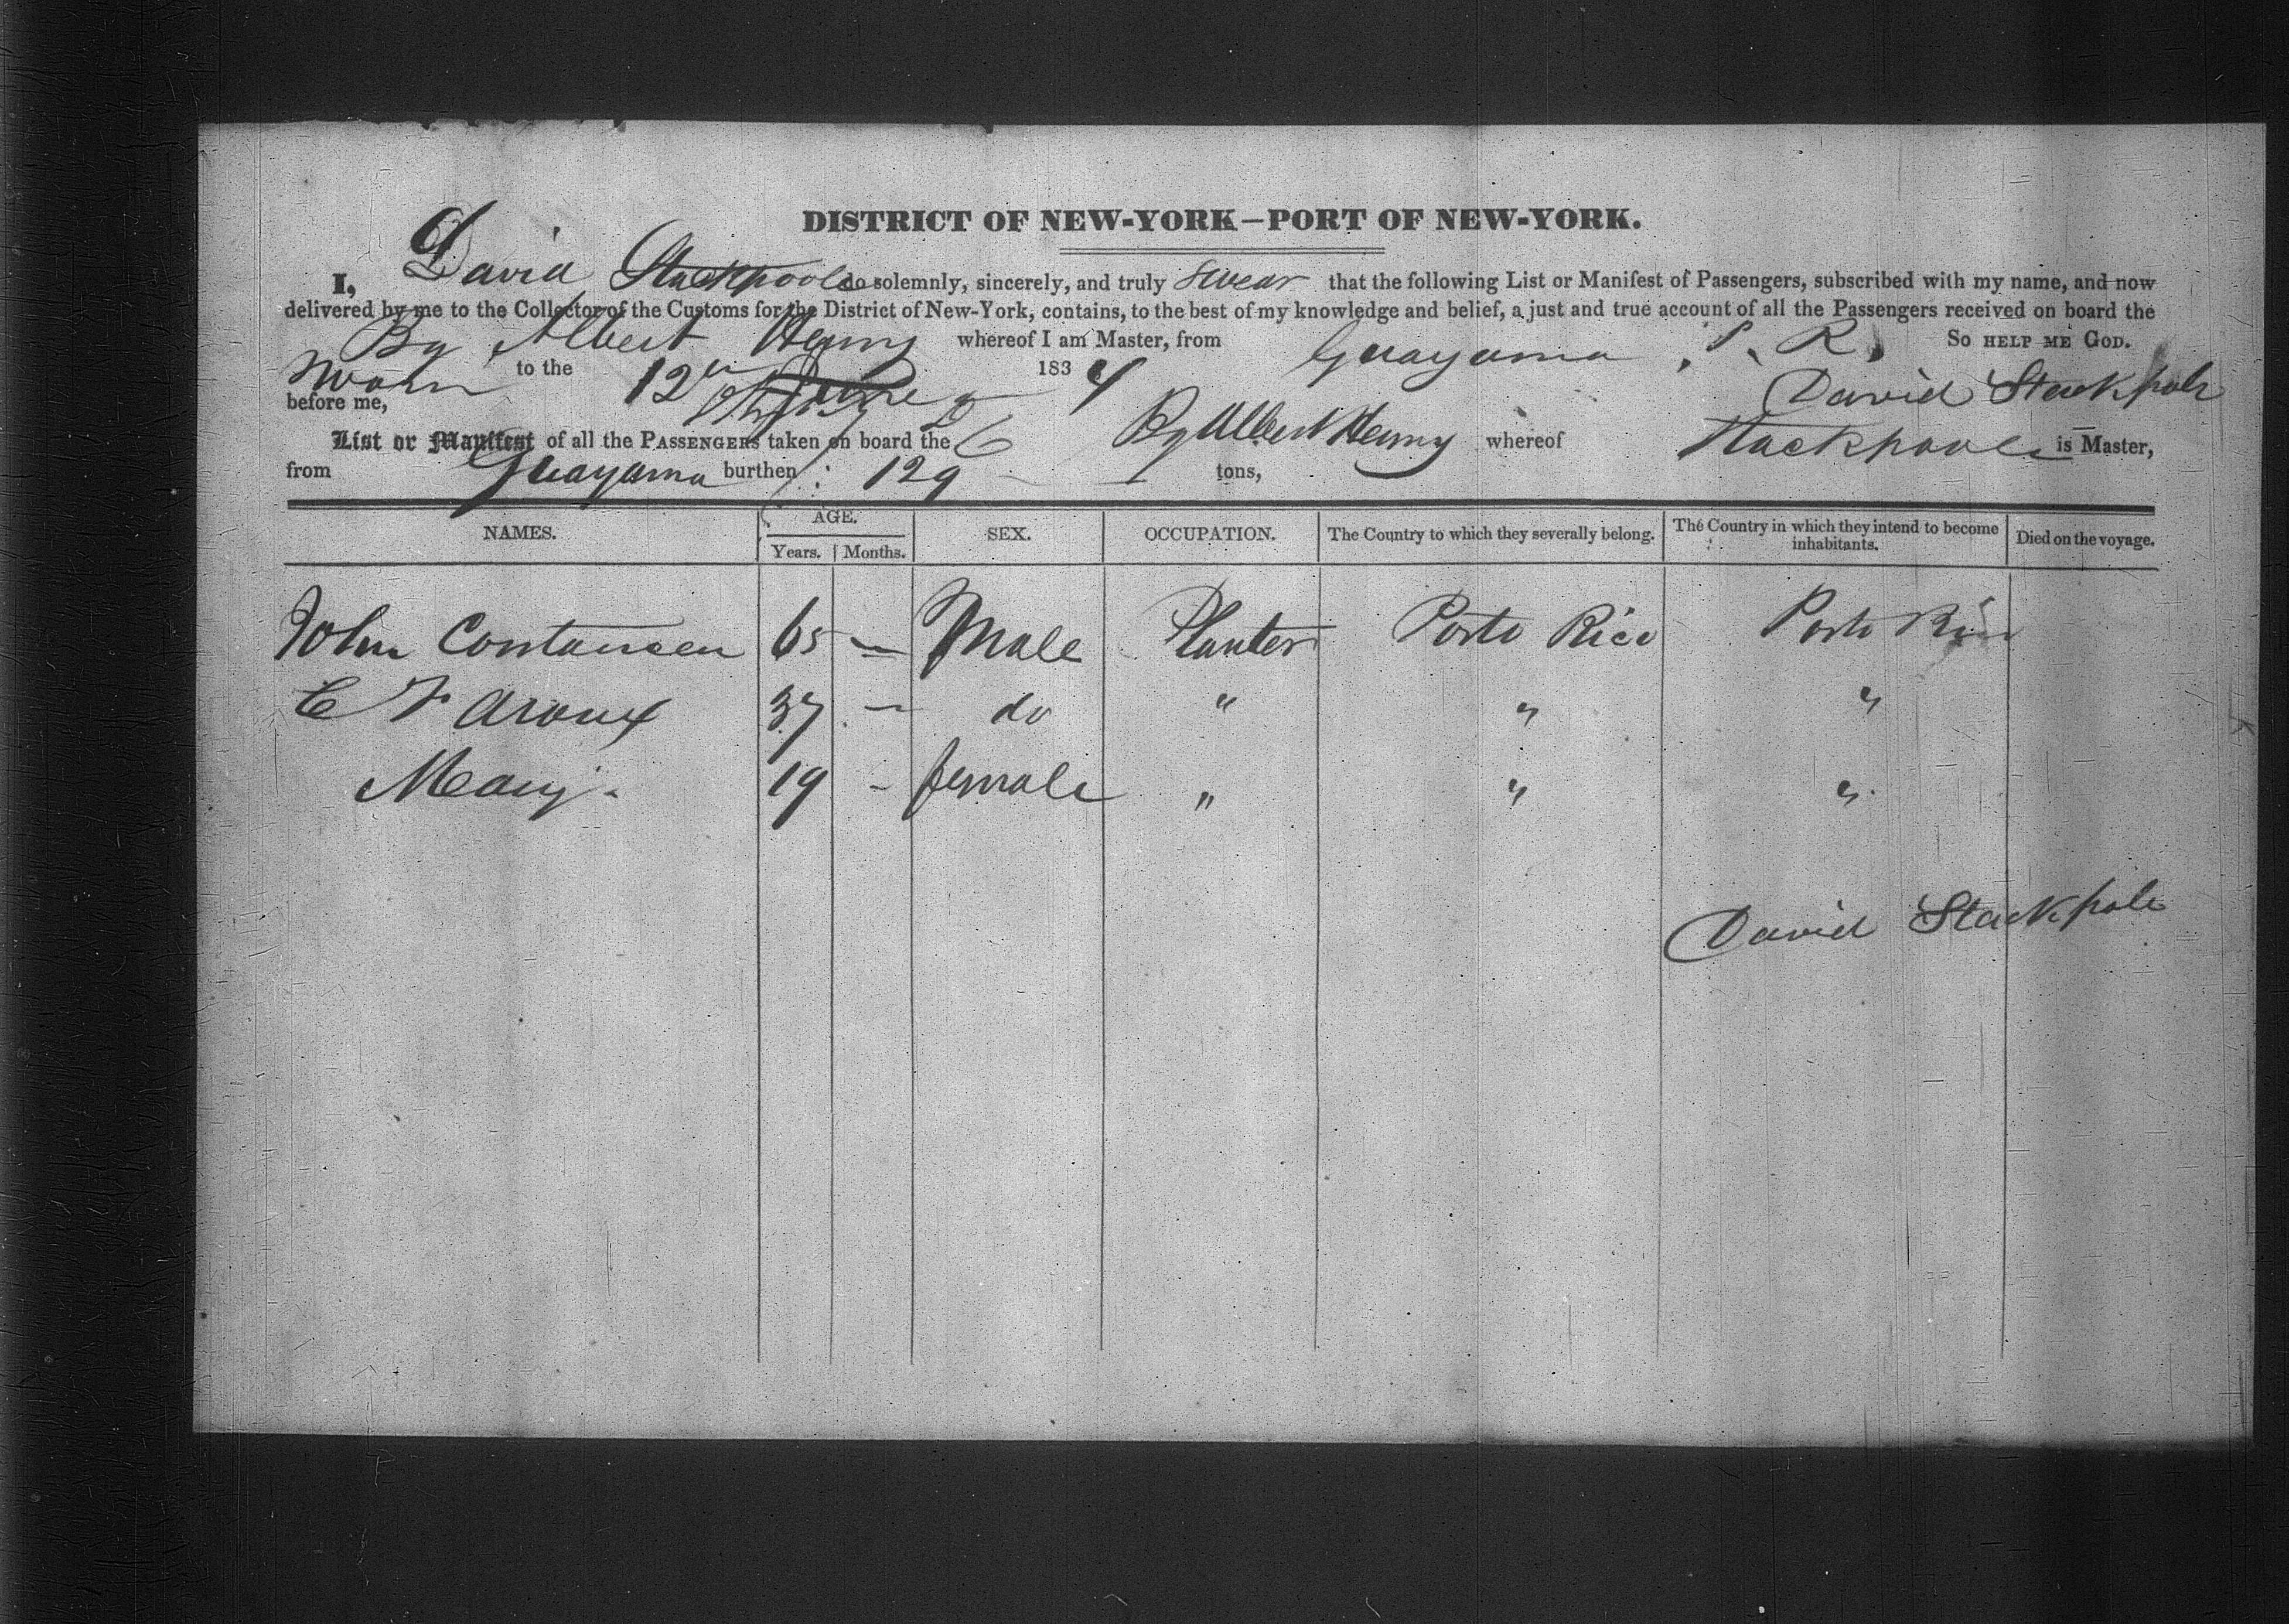 DISTRICT OF NEW-YORK—PORT OF NEW-YORK.
I, David Stackpoole do solemnly, sincerely, and truly swear that the following List or Manifest of Passengers, subscribed with my name, and now
delivered by me to the Collector of the Customs for the District of New-York, contains, to the best of my knowledge and belief, a just and true account of all the Passengers received on board the
Bg Albert Henry whereof I am Master, from Guayama P. R. So HELP ME GOD.
Sworn to the 12 June 1834 David Stackpole
before me,
List or Manifest of all the PASSENGERS taken on board the Bg Albert Henry whereof Stackpoole is Master,
from Guayama burthen 129 tons,
NAMES. AGE. SEX. OCCUPATION. The Country to which they severally belong. The Country in which they intend to become inhabitants. Died on the voyage.
Years. Months.
John Contansen 65 — Male Planter Porto Rico Porto Rico
C F Aroux 37 — do " " "
Mary 19 - female " " "
David Stackpole